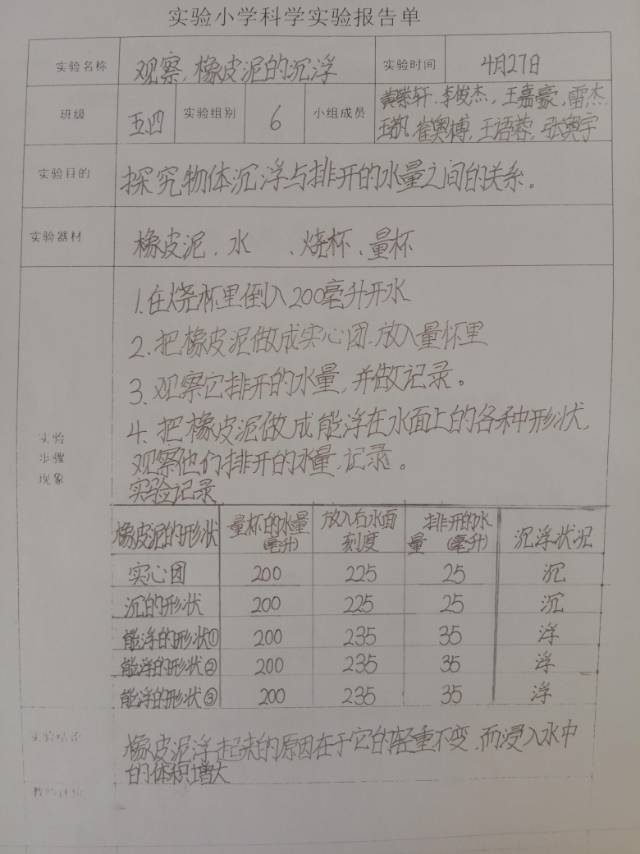 实验小学科学实验报告单
实验名称 观察,橡皮泥的沉浮 实验时间 4月27日
班级 五四 实验组别 6 小组成员 黄檗轩.李俊杰,王嘉豪,雷杰
崔奥博,王语蓉,张奥宇
实验目的 探究物体沉浮与排开的水量之间的关系。
实验器材 橡皮泥、水 、烧杯、量杯
1.在烧杯里倒入200毫升开水
2.把橡皮泥做成实心团.放入量杯里
3.观察它排开的水量,并做记录。
实验步骤现象 4.把橡皮泥做成能浮在水面上的各种形状,
观察他们排开的水量,记录。
实验记录
橡皮泥的形状 量杯的水量(毫升) 放入后水面刻度 排开的水量(毫升) 沉浮状况
实心团 200 225 25 沉
沉的形状 200 225 25 沉
能浮的形状① 200 235 35 浮
能浮的形状② 200 235 35 浮
能浮的形状③ 200 235 35 浮
实验结论 橡皮泥浮起来的原因在于它的轻重不变,而浸入水中
的体积增大